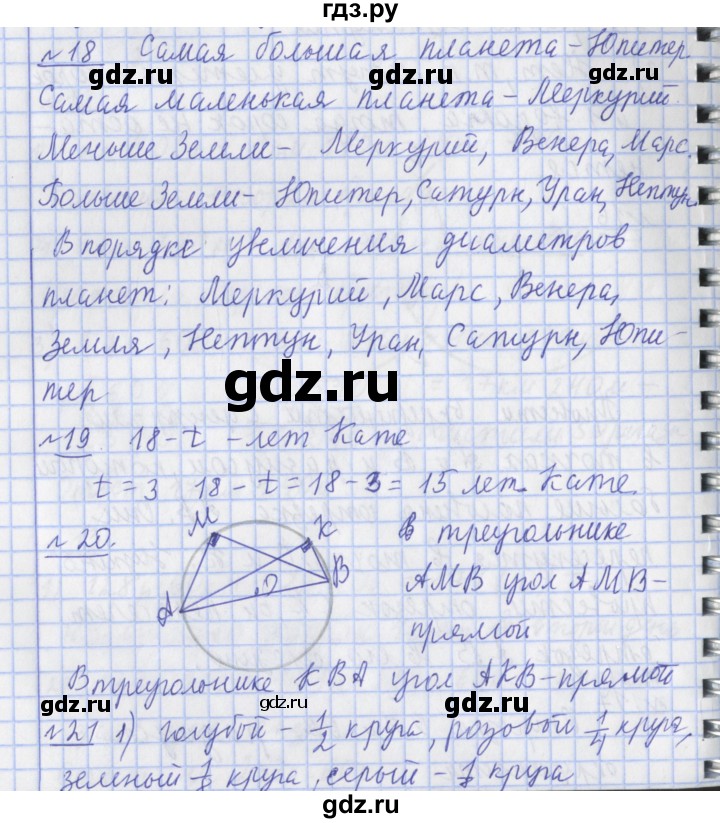 гдз.ру
№18 Самая большая планета - Юпитер.
Самая маленькая планета - Меркурий.
Меньше Земли - Меркурий, Венера, Марс.
Больше Земли - Юпитер, Сатурн, Уран, Нептун.
В порядке увеличения диаметров
планет: Меркурий, Марс, Венера,
Земля, Нептун, Уран, Сатурн, Юпи-
тер
gdz.ru
№19 18 - t - лет Кате
t = 3 18 - t = 18 - 3 = 15 лет Кате.
№20.
М К
О В
А
в треугольнике
АМВ угол АМВ -
прямой
В треугольнике КВА угол АКВ - прямой
gdz.ru gdz.ru gdz.ru
№21 1) голубой - 1/2 круга, розовой 1/4 круга,
зеленый 1/8 круга, серый - 1/8 круга
gdz.ru gdz.ru